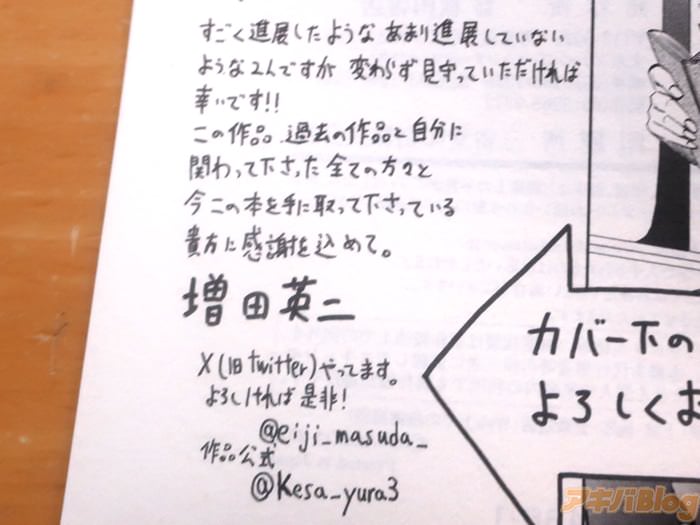 すごく進展したような あまり進展していない
ような2人ですが 変わらず見守っていただければ
幸いです!!
この作品、過去の作品と自分に
関わって下さった全ての方々と
今この本を手に取って下さっている
貴方に感謝を込めて。
増田英二
X(旧twitter)やってます。
よろしければ是非!
@eiji_masuda_
作品公式
@Kesa_yura3
カバー下の
よろしくお
アキバBlog